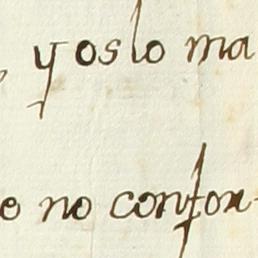 y os lo ma
o no confor